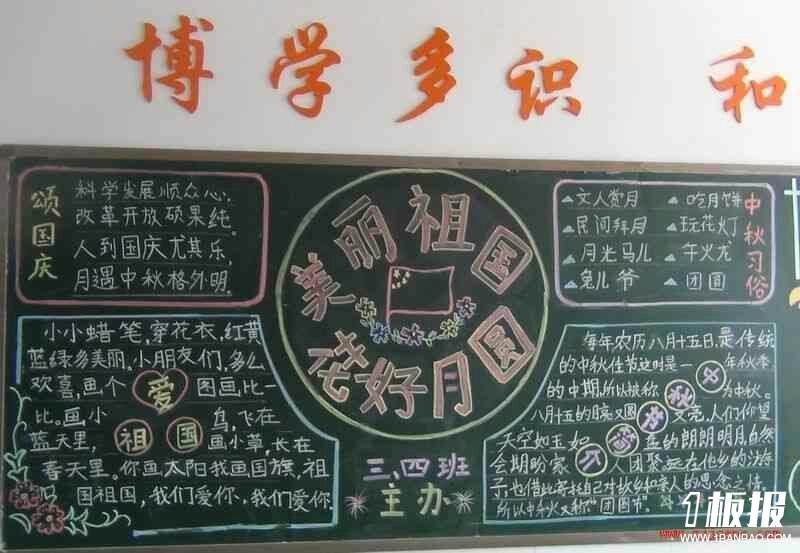 博学多识 和
颂国庆
科学发展顺众心，
改革开放硕果纯。
人到国庆尤其乐，
月遇中秋格外明。
美丽祖国
花好月圆
三、四班
主办
中秋习俗
文人赏月 吃月饼
民间拜月 玩花灯
月光马儿 午火龙
兔儿爷 团圆
小小蜡笔，穿花衣，红黄
蓝绿多美丽，小朋友们，多么
欢喜，画个 爱 图画比一
比。画小 鸟，飞在
蓝天里， 祖国 画小草，长在
春天里。你画太阳我画国旗，祖
国祖国，我们爱你，我们爱你
每年农历八月十五日，是传统
的中秋佳节这时是一 年秋季
的中期，所以被称 中 为中秋。
八月十五的 又圆 秋 又亮，人们仰望
天空如玉如 在的朗朗明月自然
会期盼家 人团聚远在他乡的游
子，也借此寄托自己对故乡和亲人的思念之情。
所以中秋又称“团圆节”。
1板报
WWW.1BANBAO.COM